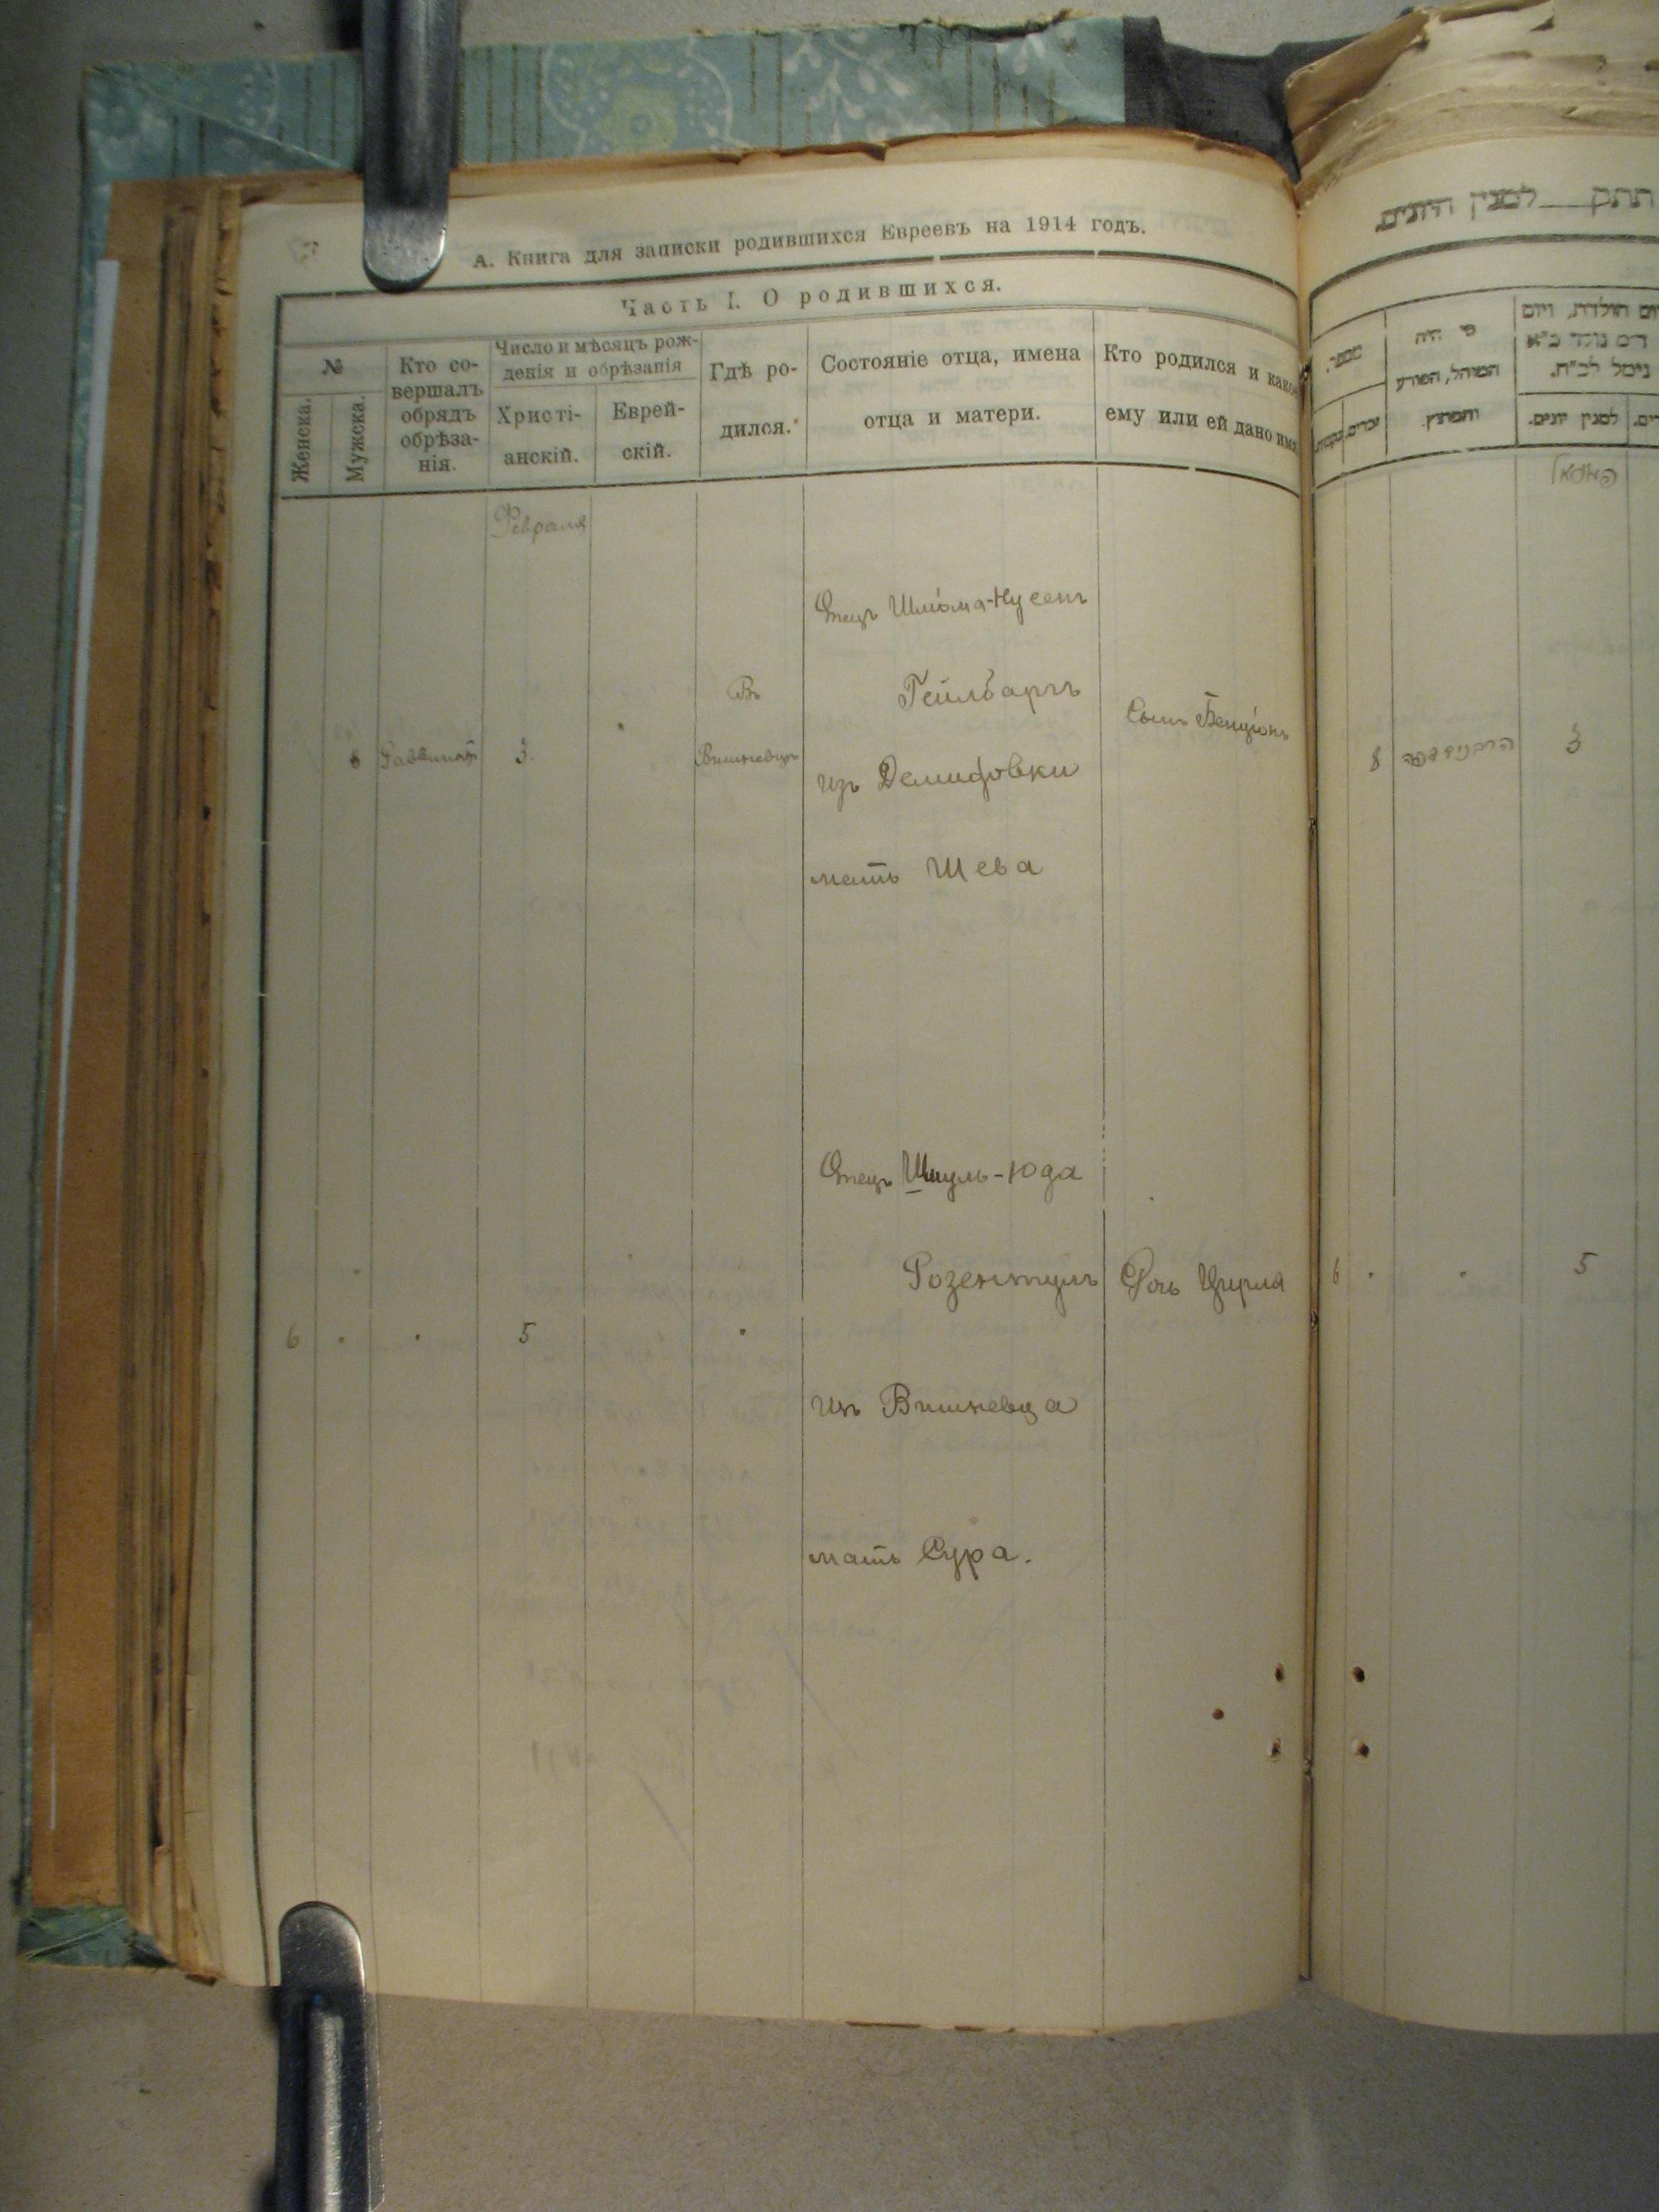 А. Книга для записки родившихся Евреевъ на 1914 годъ.
Часть I. О родившихся.
№
Женска.
Мужска.
Кто со-
вершалъ
обрядъ
обрѣза-
нія.
Число и мѣсяцъ рож-
денія и обрѣзанія
Христі-
анскій.
Еврей-
скій.
Гдѣ ро-
дился.
Состояніе отца, имена
отца и матери.
Кто родился и какое
ему или ей дано имя
Февраля
8
Раввинат
3.
Въ
Вишневцѣ
Отецъ Шлома-Нусенъ
Гейлбаргъ
изъ Демидовки
мать Шева
Сынъ Бенціонъ
6
5
Отецъ Шмуль-Юда
Розентулъ
изъ Вишневца
мать Сура.
Дочь Цирля
למנין היונים
מספר.
מי היה
המוהל, הפורע
והמוצץ.
יום הולדת, ויום
נימל לב"ח.
זכרים.
למנין יונים.
8
3
6
5